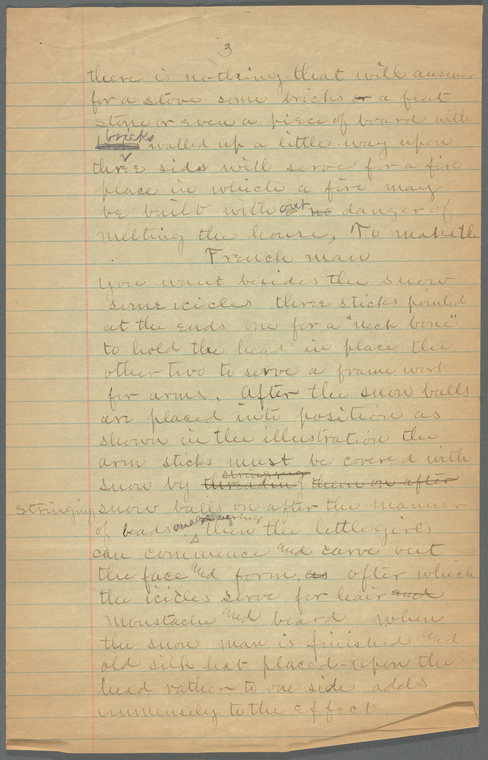 3
there is nothing that will answer
for a stove some bricks or a flat
stone or even a piece of board with
bricks walled up a little way upon
three sids will serve for a fire
place in which a fire may
be built without no danger of
melting the house, To make the
French man
you want besides the snow
some icicles three sticks pointed
at the ends one for a "neck bone"
to hold the head in place the
other two to serve a frame work
for arms. After the snow balls
are placed into position as
shown in the illustration the
arm sticks must be covered with
snow by threading stringing them on after
stringing snow balls on after the manner
of beads on a string then the little girls
can commence and carve out
the face and form, as after which
the icicles serve for hair and
moustache and beard when
the snow man is finished and
old silk hat placed upon the
head rather to one side adds
immensely to the effect